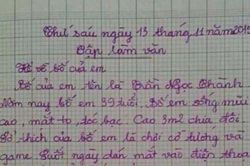 Thứ sáu ngày 13 tháng 11 năm 201
Tập làm văn
Kể về bố của em
Bố của em tên là Trần Ngọc Thành
Năm nay bố em 39 tuổi. Bố em sống mũi
cao, mắt to, tóc bạc. Cao 3m2 chia đôi.
Sở thích của bố em là chơi cờ tướng và
game. Suốt ngày dán mắt vào điện tho